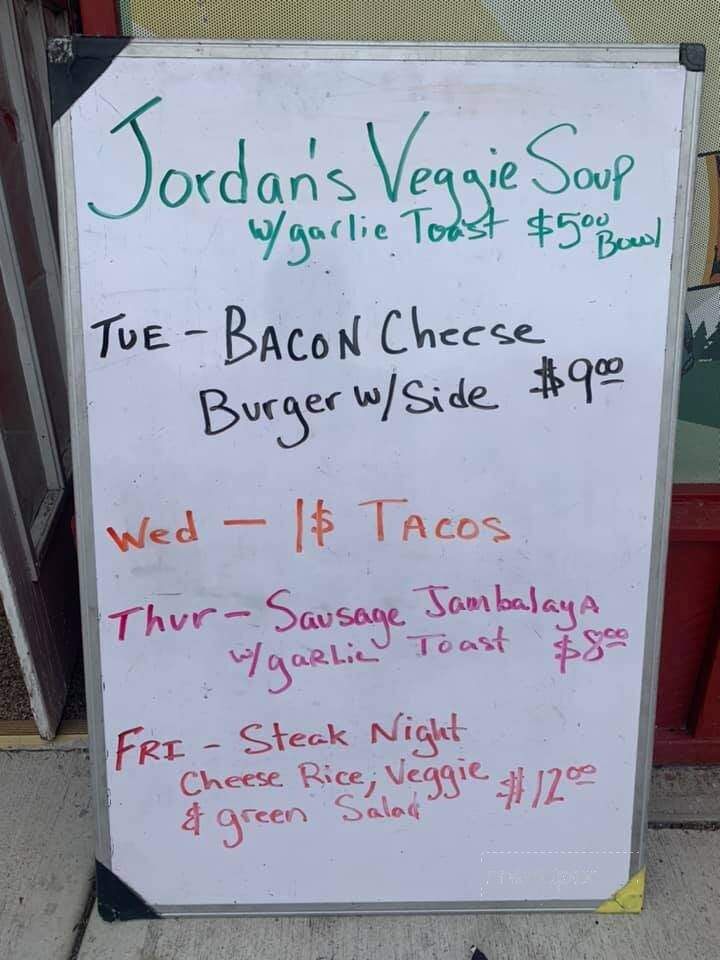 Jordan's Veggie Soup
w/garlic Toast $5.00 Bowl
TUE - BACON Cheese
Burger w/Side $9.00
Wed - 1$ TACOS
Thur - Sausage JambalayA
w/gaRLic Toast $8.00
FRI - Steak Night
Cheese Rice, Veggie $12.00
& green Salad